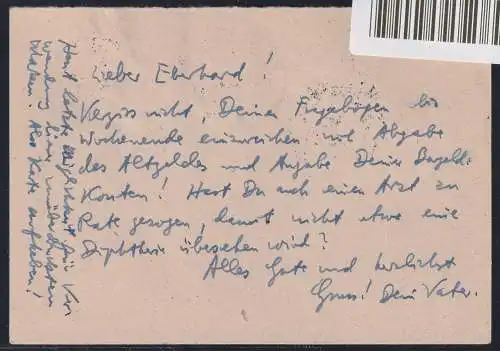 Lieber Eberhard!
Vergiss nicht, Deinen Fragebogen bis
Wochenende einzureichen und Abgabe
des Altgeldes und Angabe Deiner Bargeld-
Konten! Hast Du auch einen Arzt zu
Rate gezogen, damit nicht etwa eine
Diphtherie übersehen wird?
Alles Gute und herzlichst
Gruss! Dein Vater.
Heut letzte Möglichkeit für Ver-
wendung
Marken. Also Karte aufheben!